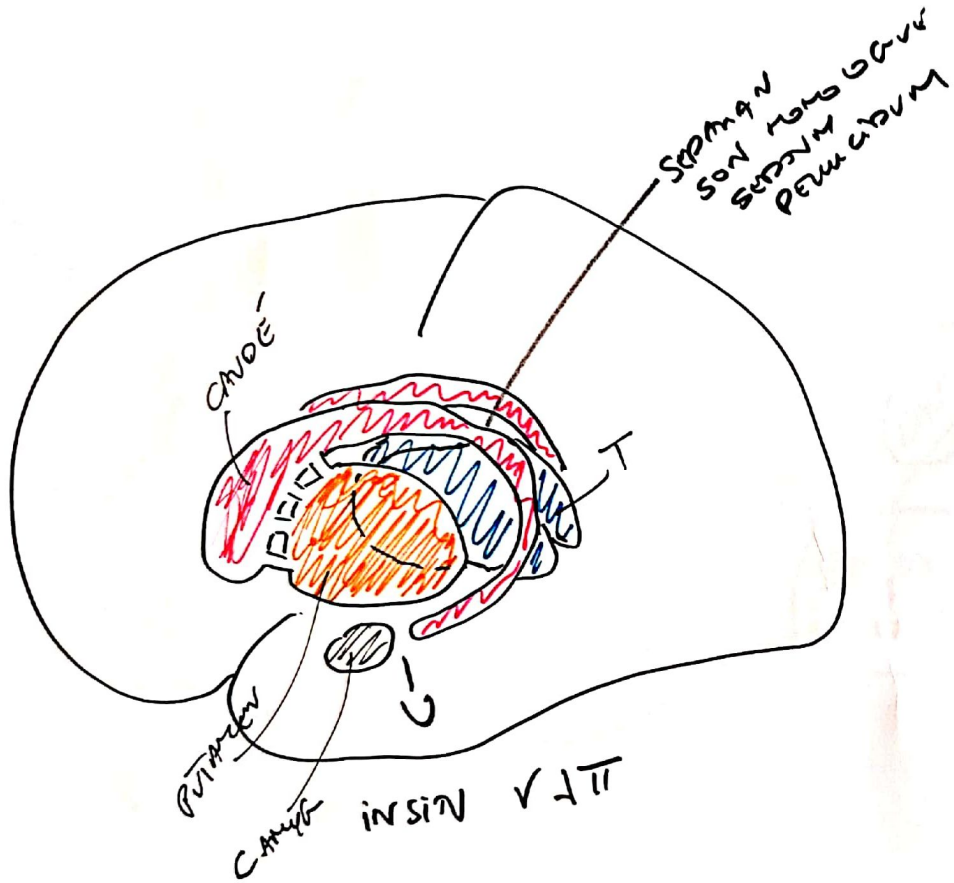 SEPARAN
SON HOMOLOGUE
SEPTUM
PELLUCIDUM
CAUDÉ
T
PUTAMEN
in situ